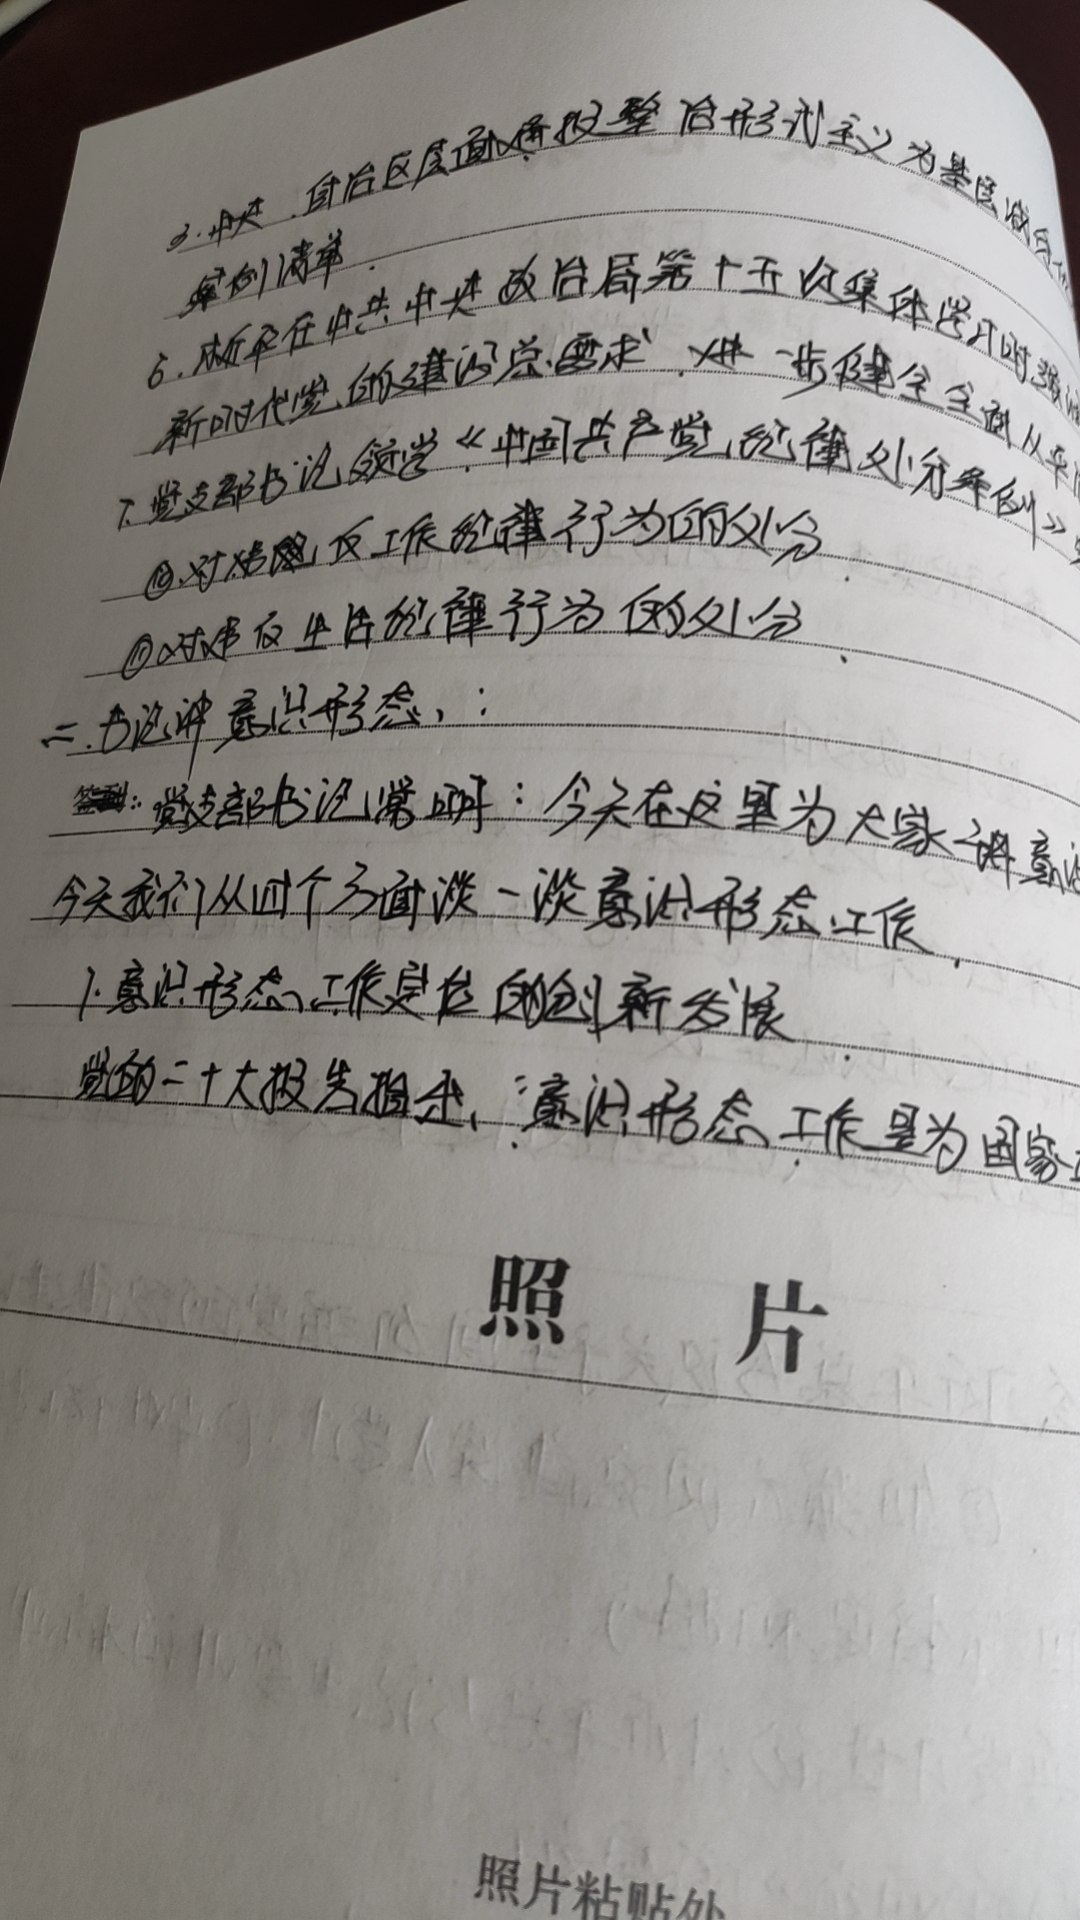 5.中央、自治区层面通报整治形式主义为基层减负
案例清单.
6.习近平在中共中央政治局第十五次集体学习时强调
新时代党的建设总要求,进一步健全全面从严
7.党支部书记领学《中国共产党纪律处分条例》
⑩.对违反工作纪律行为的处分.
⑪对违反生活纪律行为的处分.
二.书记讲意识形态:
党支部书记常明:今天在这里为大家讲意识
今天我们从四个方面谈一谈意识形态工作.
1.意识形态工作定位的创新发展.
党的二十大报告指出,:意识形态工作是为国家
照 片
照片粘贴处